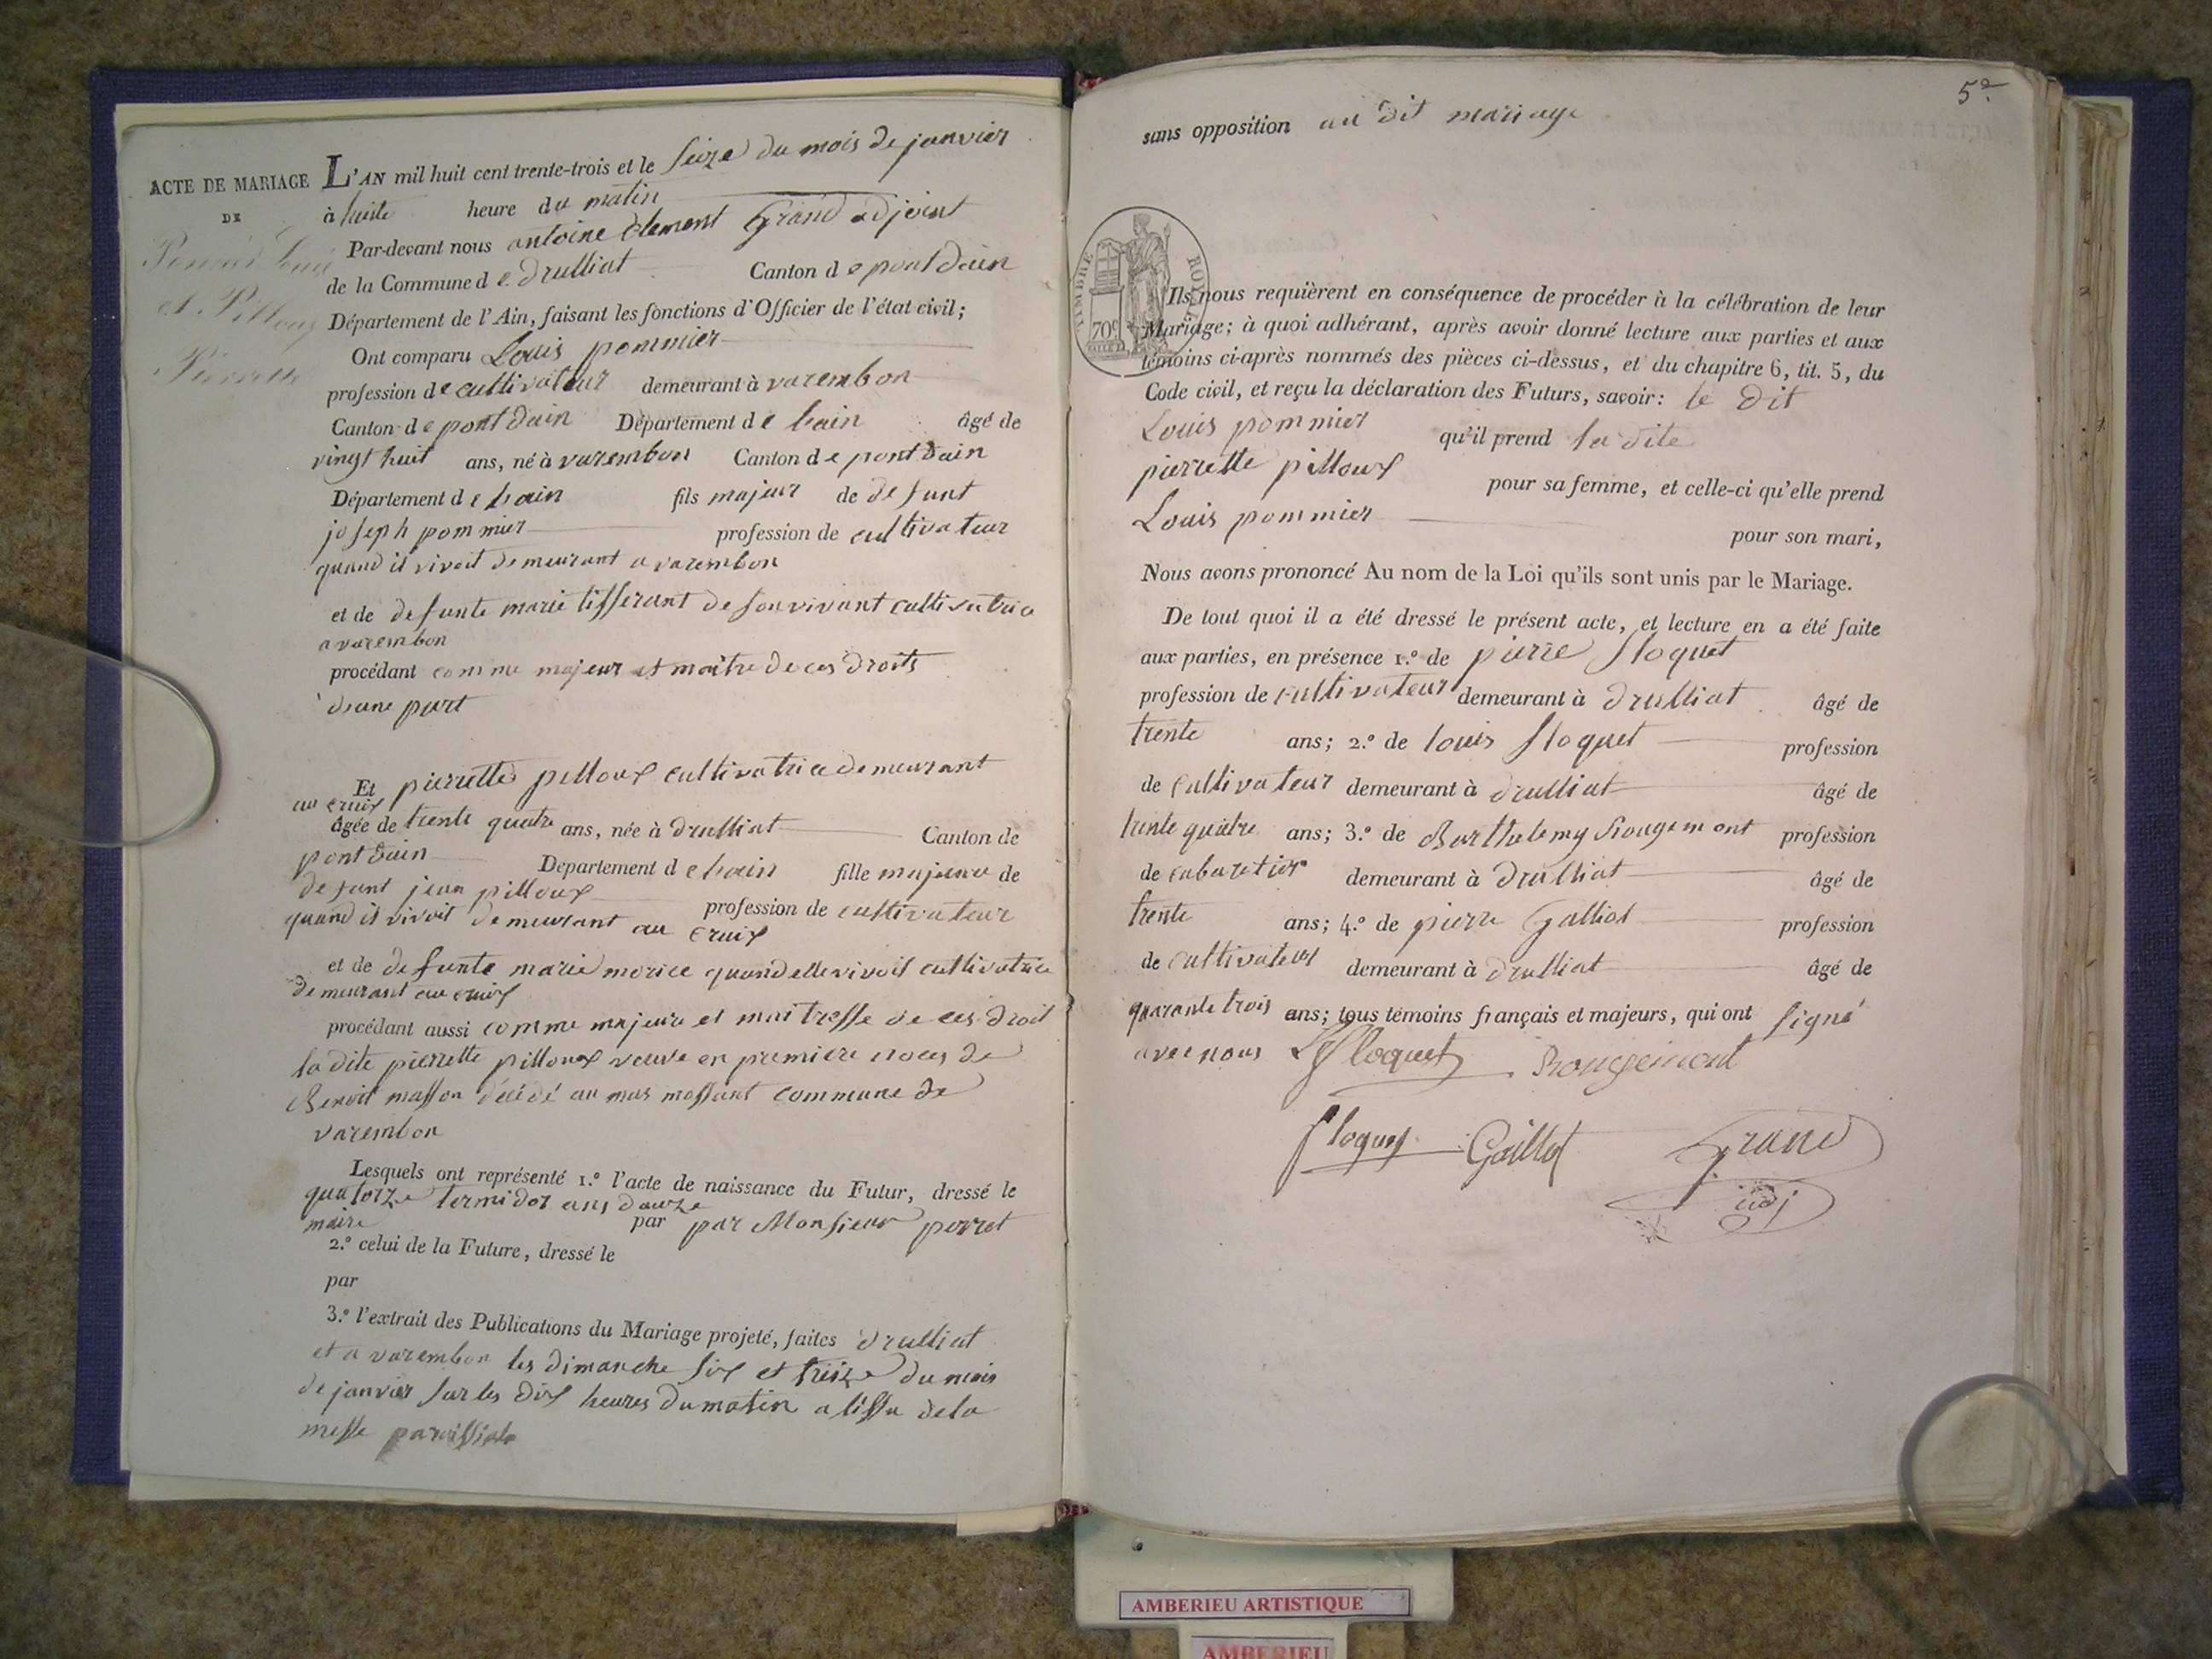 ACTE DE MARIAGE
DE
L'AN mil huit cent trente-trois et le seize du mois de janvier
à huite heure du matin
Par-devant nous antoine Clement Grand adjoint
de la Commune de Drulliat Canton de pont Dain
Département de l'Ain, faisant les fonctions d'Officier de l'état civil;
Ont comparu Louis pommier
profession de cultivateur demeurant à varembon
Canton de pont Dain Département de lain âgé de
vingt huit ans, né à varembon Canton de pont Dain
Département de lain fils majeur de defunt
joseph pommier profession de cultivateur
quand il vivoit demeurant a varembon
et de defunte marie tisserant de son vivant cultivatrice
a varembon
procédant comme majeur et maitre de ces droits
d'une part
Et pierrette pilloux cultivatrice demeurant
au cruix
âgée de trente quatre ans, née à Drulliat Canton de
pont Dain Département de lain fille majeure de
defunt jean pilloux
quand il vivoit demeurant au cruix profession de cultivateur
et de defunte marie morice quand elle vivoit cultivatrice
demeurant au cruix
procédant aussi comme majeure et maitresse de ces droit
la dite pierrette pilloux veuve en premiere noces de
Benoit masson décédé au mas massant commune de
varembon
Lesquels ont représenté 1.º l'acte de naissance du Futur, dressé le
quatorze termidor ans douze
maire par par Monsieur perret
2.º celui de la Future, dressé le
par
3.º l'extrait des Publications du Mariage projeté, faites Drulliat
et a varembon les dimanche six et treize du mois
de janvier sur les dix heures du matin a lissu de la
messe paroissiale
52
sans opposition au dit mariage
TIMBRE ROYAL
70c
Ils nous requièrent en conséquence de procéder à la célébration de leur
Mariage; à quoi adhérant, après avoir donné lecture aux parties et aux
témoins ci-après nommés des pièces ci-dessus, et du chapitre 6, tit. 5, du
Code civil, et reçu la déclaration des Futurs, savoir: le dit
Louis pommier qu'il prend la dite
pierrette pilloux pour sa femme, et celle-ci qu'elle prend
Louis pommier pour son mari,
Nous avons prononcé Au nom de la Loi qu'ils sont unis par le Mariage.
De tout quoi il a été dressé le présent acte, et lecture en a été faite
aux parties, en présence 1.º de pierre floquet
profession de cultivateur demeurant à Drulliat âgé de
trente ans; 2.º de louis floquet profession
de cultivateur demeurant à drulliat âgé de
trente quatre ans; 3.º de Barthelemy Rougemont profession
de cabaretier demeurant à Drulliat âgé de
trente ans; 4.º de pierre Galliot profession
de cultivateur demeurant à drulliat âgé de
quarante trois ans; tous témoins français et majeurs, qui ont signé
avec nous Ls floquet Rougemont
floquet Gaillot Grand
adj
AMBERIEU ARTISTIQUE
AMBERIEU